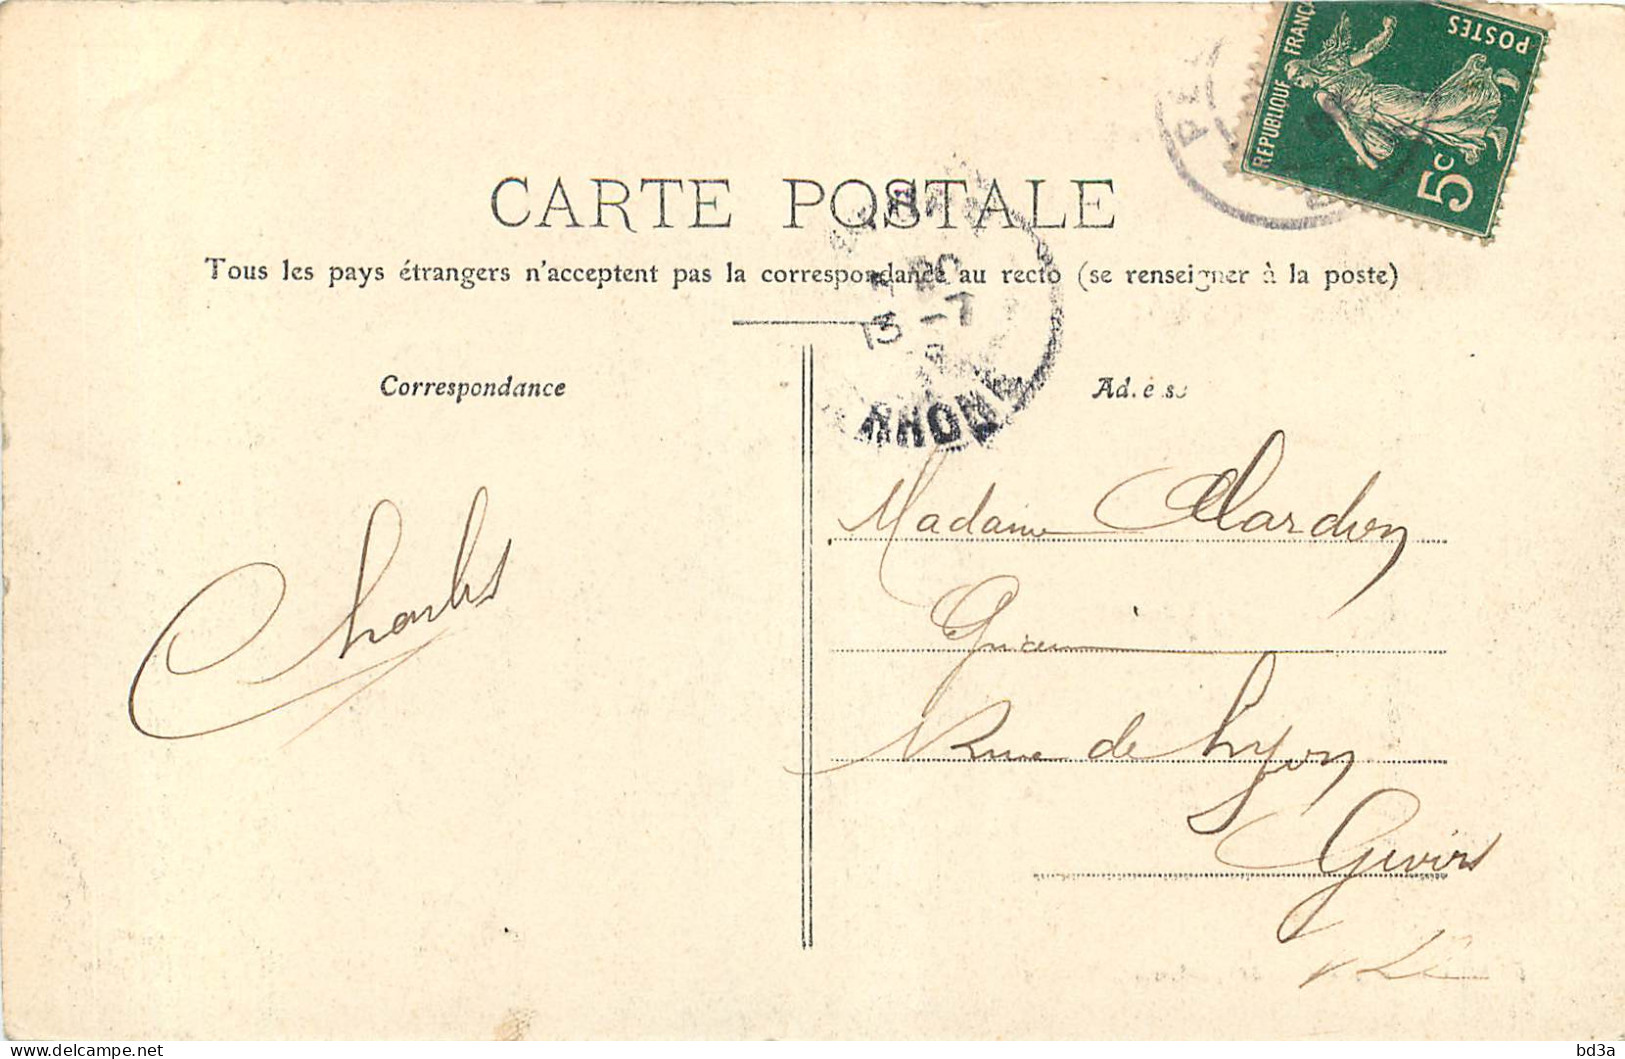 REPUBLIQUE FRANÇA
POSTES
5c
CARTE POSTALE
Tous les pays étrangers n'acceptent pas la correspondance au recto (se renseigner à la poste)
13 -7
RHONE
Correspondance
Charles
Madame
Rue de Lyon
Givors
bd3a